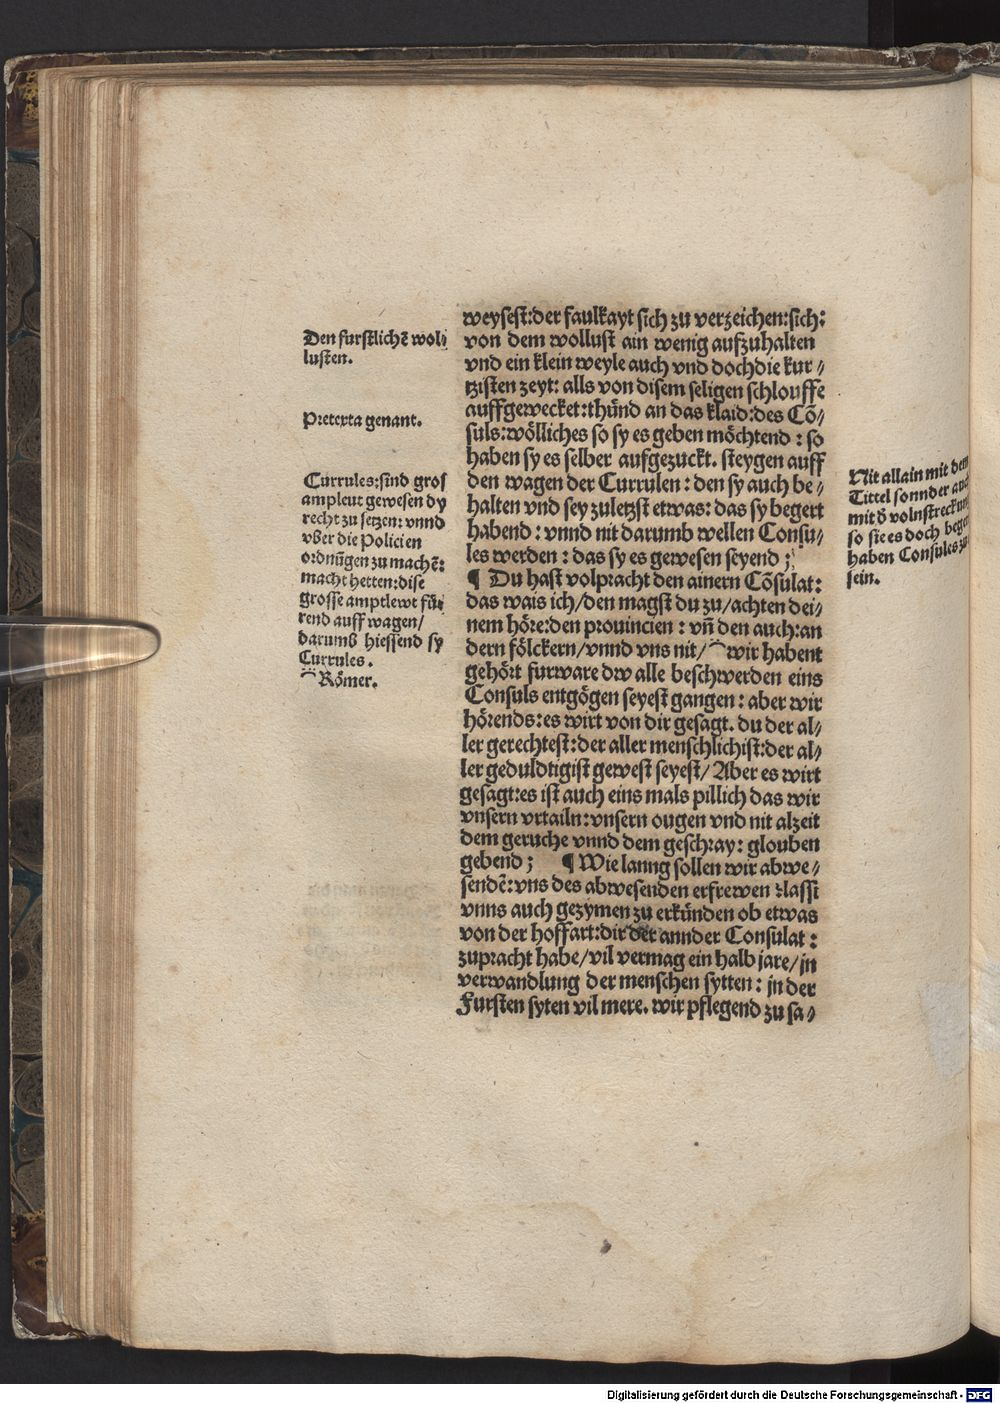 Den furstlichē wol⸗
lusten.
Pretexta genant.
Currules: sind gros
ampleut gewesen dy
recht zu setzen: vnnd
vber die Policien
ordnūgen zu machē:
macht hetten: dise
grosse amptlewt fū⸗
rend auff wagen/
darumb hiessend sy
Currules.
Römer.
weysest: der faulkayt sich zu verzeichen: sich:
von dem wollust ain wenig aufzuhalten
vnd ein klein weyle auch vnd dochdie kur⸗
tzisten zeyt: alls von disem seligen schlouffe
auffgewecket: thünd an das klaid: des Cō⸗
suls: wölliches so sy es geben möchtend: so
haben sy es selber aufgezuckt. steygen auff
den wagen der Currulen: den sy auch be⸗
halten vnd sey zuletzst etwas: das sy begert
habend: vnnd nit darumb wellen Consu⸗
les werden: das sy es gewesen seyend;
¶ Du hast volpracht den ainern Cōsulat:
das wais ich/ den magst du zu/ achten dei⸗
nem höre: den prouincien: vn̄ den auch: an
dern fölckern/ vnnd vns nit/ wir habent
gehört furware dw alle beschwerden eins
Consuls entgögen seyest gangen: aber wir
hörends: es wirt von dir gesagt. du der al⸗
ler gerechtest: der aller menschlichist: der al⸗
ler geduldtigist gewest seyest/ Aber es wirt
gesagt: es ist auch eins mals pillich das wir
vnsern vrtailn: vnsern ougen vnd nit alzeit
dem geruche vnnd dem geschray: glouben
gebend; ¶ Wie lanng sollen wir abwe⸗
sendē: vns des abwesenden erfrewen ꝛlasst
vnns auch gezymen zu erkünden ob etwas
von der hoffart: dir der annder Consulat:
zupracht habe/ vil vermag ein halb jare/ jn
verwandlung der menschen sytten: jn der
Fursten syten vil mere. wir pflegend zu sa⸗
Nit allain mit dem
Tittel sonnder auch
mit d̄ volnstreckung
so sie es doch
haben Consules zu
sein.
Digitalisierung gefördert durch die Deutsche Forschungsgemeinschaft - DFG